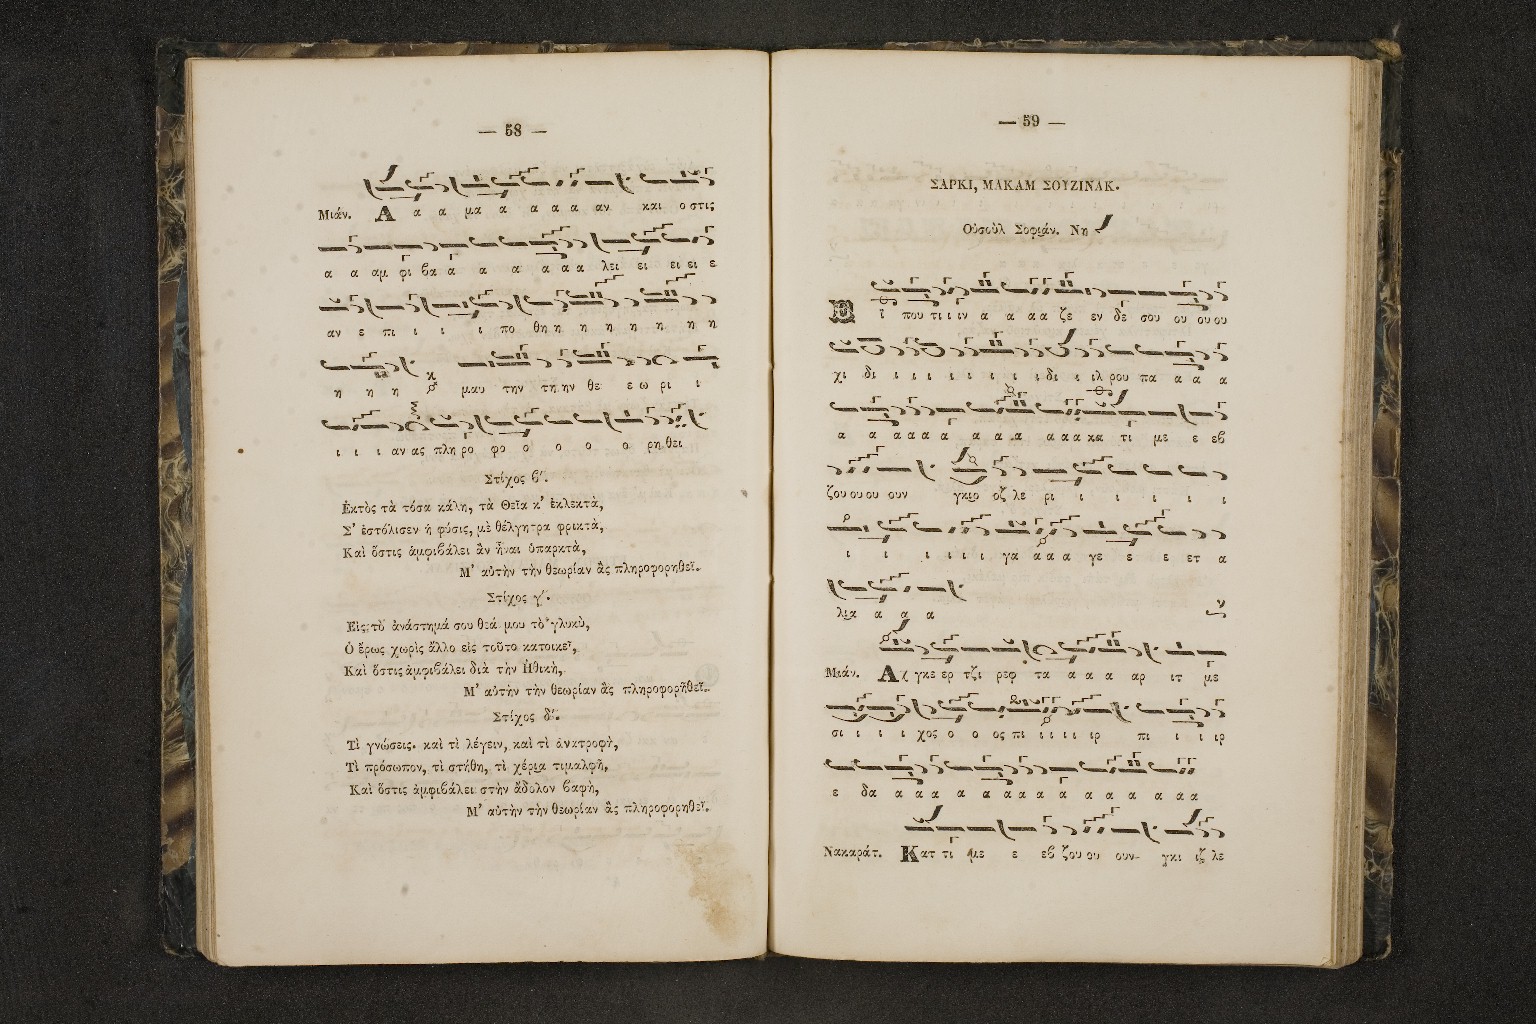 — 58 —
Μιάν. Α α α μα α α α α αν και ο στις
α α αμ φι βα α α α α α α λει ει ει ει ε
αν ε πι ι ι ι πο θη η η η η η η η
η η η μαυ την τη ην θε ε ω ρι ι
ι ι ι αν ας πλη ρο φο ο ο ο ο ρη θει
Στίχος β΄.
Ἐκτὸς τὰ τόσα κάλη, τὰ Θεῖα κ' ἐκλεκτὰ,
Σ' ἐστόλισεν ἡ φύσις, μὲ θέλγητρα φρικτὰ,
Καὶ ὅστις ἀμφιβάλει ἂν ἦναι ὑπαρκτὰ,
Μ' αὐτὴν τὴν θεωρίαν ἂς πληροφορηθεῖ.
Στίχος γ΄.
Εἰς τὸ ἀνάστημά σου θεά μου τὸ γλυκὺ,
Ὁ ἔρως χωρὶς ἄλλο εἰς τοῦτο κατοικεῖ,
Καὶ ὅστις ἀμφιβάλει διὰ τὴν Ἠθικὴ,
Μ' αὐτὴν τὴν θεωρίαν ἂς πληροφορῆθεῖ.
Στίχος δ΄.
Τὶ γνώσεις· καὶ τὶ λέγειν, καὶ τὶ ἀνατροφὴ,
Τὶ πρόσωπον, τὶ στήθη, τὶ χέρια τιμαλφῆ,
Καὶ ὅστις ἀμφιβάλει στὴν ἄδολον βαφὴ,
Μ' αὐτὴν τὴν θεωρίαν ἂς πληροφορηθεῖ.
— 59 —
ΣΑΡΚΙ, ΜΑΚΑΜ ΣΟΥΖΙΝΑΚ.
Οὐσοὺλ Σοφιάν. Νη
ι που τι ι ιν α α α α ζε εν δε σου ου ου ου
χι δι ι ι ι ι ι ι ι ι δι ι ιλ ρου πα α α α
α α α α α α α α α α α α κα τι με ε εβ
ζου ου ου ουν γκιο οζ λε ρι ι ι ι ι ι
ι ι ι ι ι ι γα α α α γε ε ε ετ α
λια α α α
Μιάν. Αχ γκε ερ τζι ρεφ τα α α α αρ ιτ με
σι ι ι ι χος ο ο ος πι ι ι ι ι ιρ πι ι ι ιρ
ε δα α α α α α α α α α α α α α α
Νακαράτ. Κατ τι με ε εβ ζου ου ουν- γκι ιζ λε